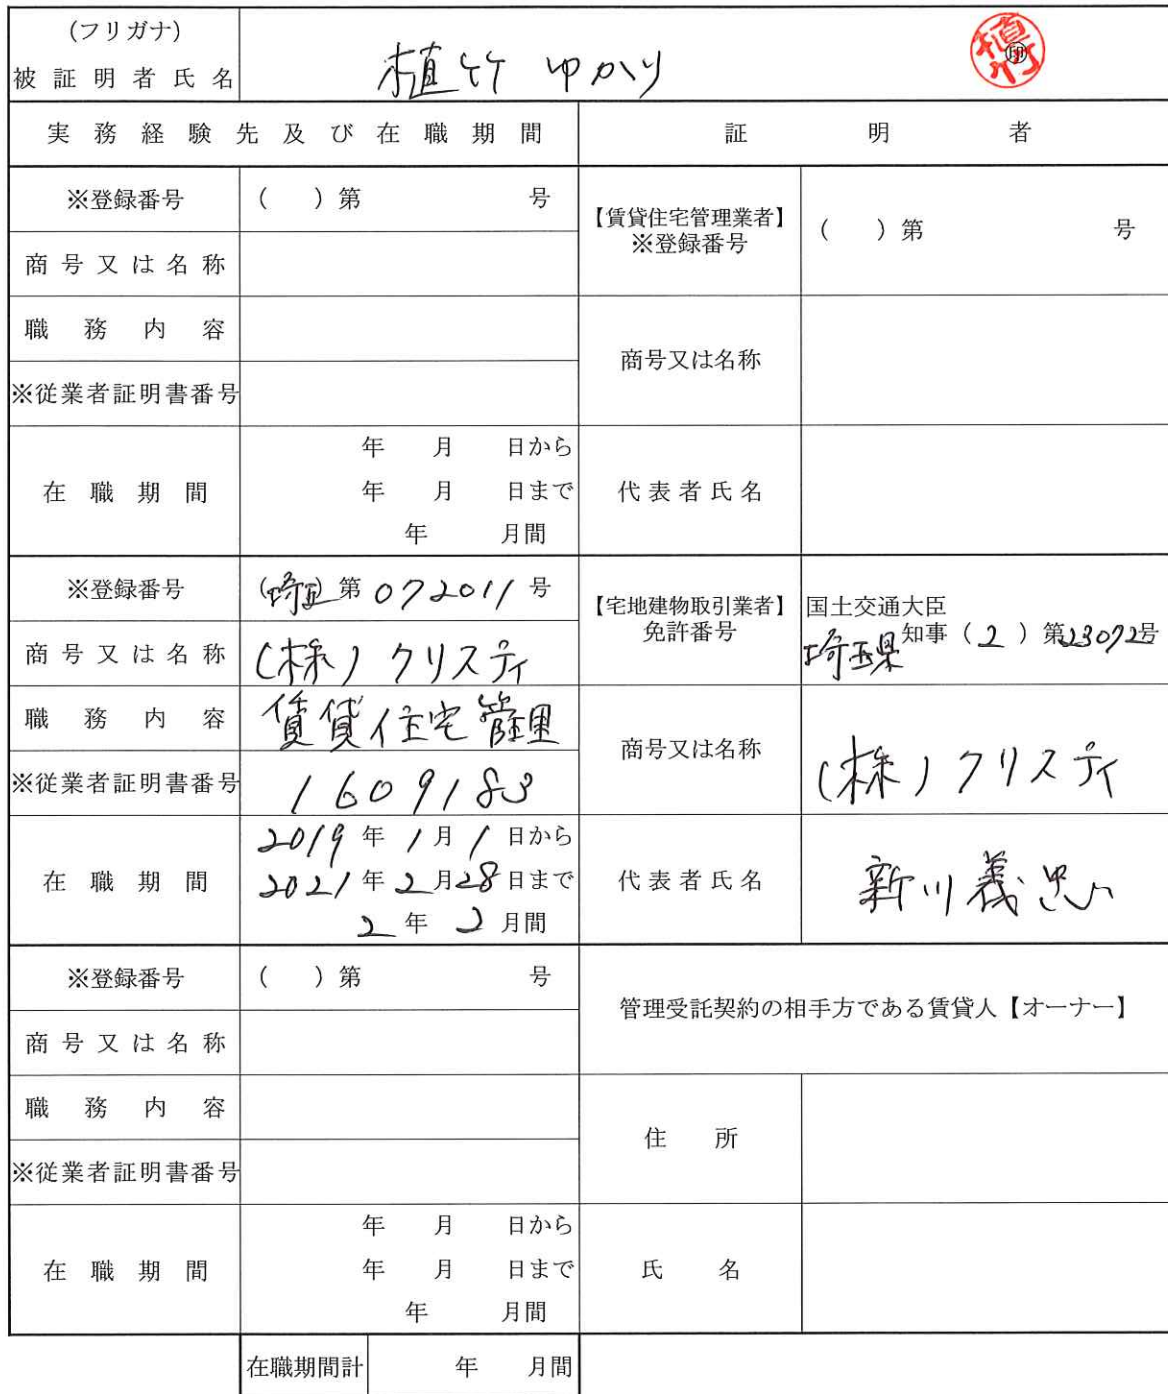 (フリガナ)
被証明者氏名 植竹 ゆかり 植竹 印
実務経験先及び在職期間 証明者
※登録番号 ( )第 号 【賃貸住宅管理業者】
※登録番号 ( )第 号
商号又は名称
職務内容
商号又は名称
※従業者証明書番号
在職期間 年 月 日から
年 月 日まで
年 月間
代表者氏名
※登録番号 (埼玉)第072011号 【宅地建物取引業者】
免許番号 国土交通大臣
埼玉県知事(2)第23072号
商号又は名称 (株)クリスティ
職務内容 賃貸住宅管理
商号又は名称 (株)クリスティ
※従業者証明書番号 1609183
在職期間 2019年1月1日から
2021年2月28日まで
2年2月間
代表者氏名 新川義忠
※登録番号 ( )第 号 管理受託契約の相手方である賃貸人【オーナー】
商号又は名称
職務内容
住所
※従業者証明書番号
在職期間 年 月 日から
年 月 日まで
年 月間
氏名
在職期間計 年 月間